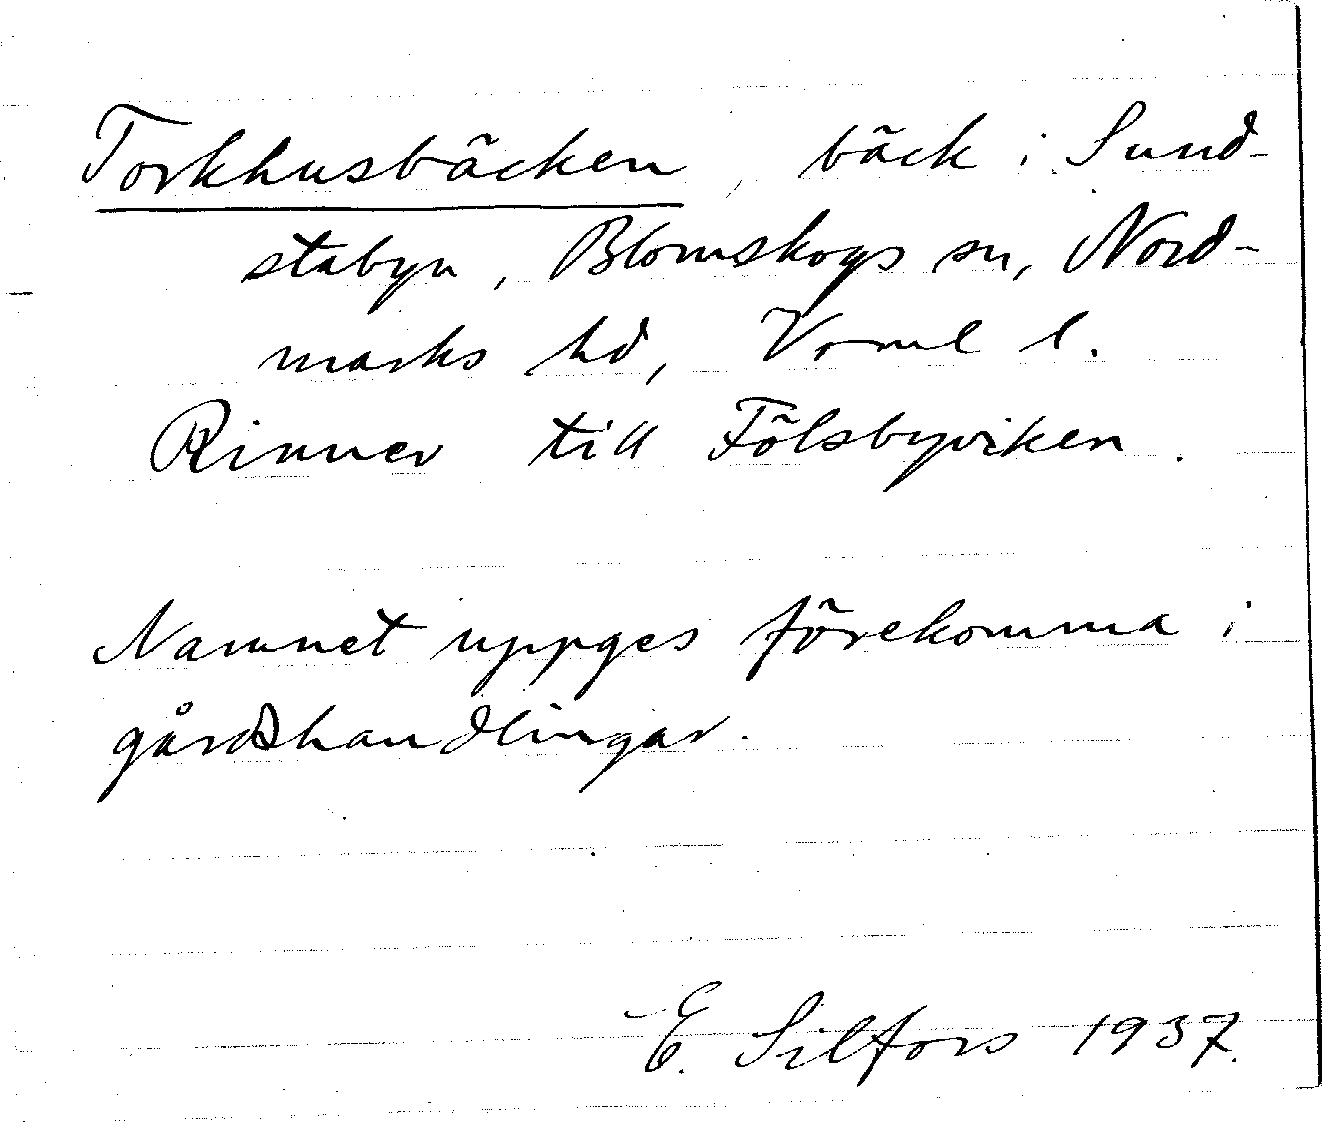 Torkhusbäcken, bäck i Sund-
stabyn, Blomskogs sn, Nord-
marks hd, Vrml l.
Rinner till Fölsbyviken.
Namnet uppges förekomma i
gårdshandlingar.
E. Silfors 1937.